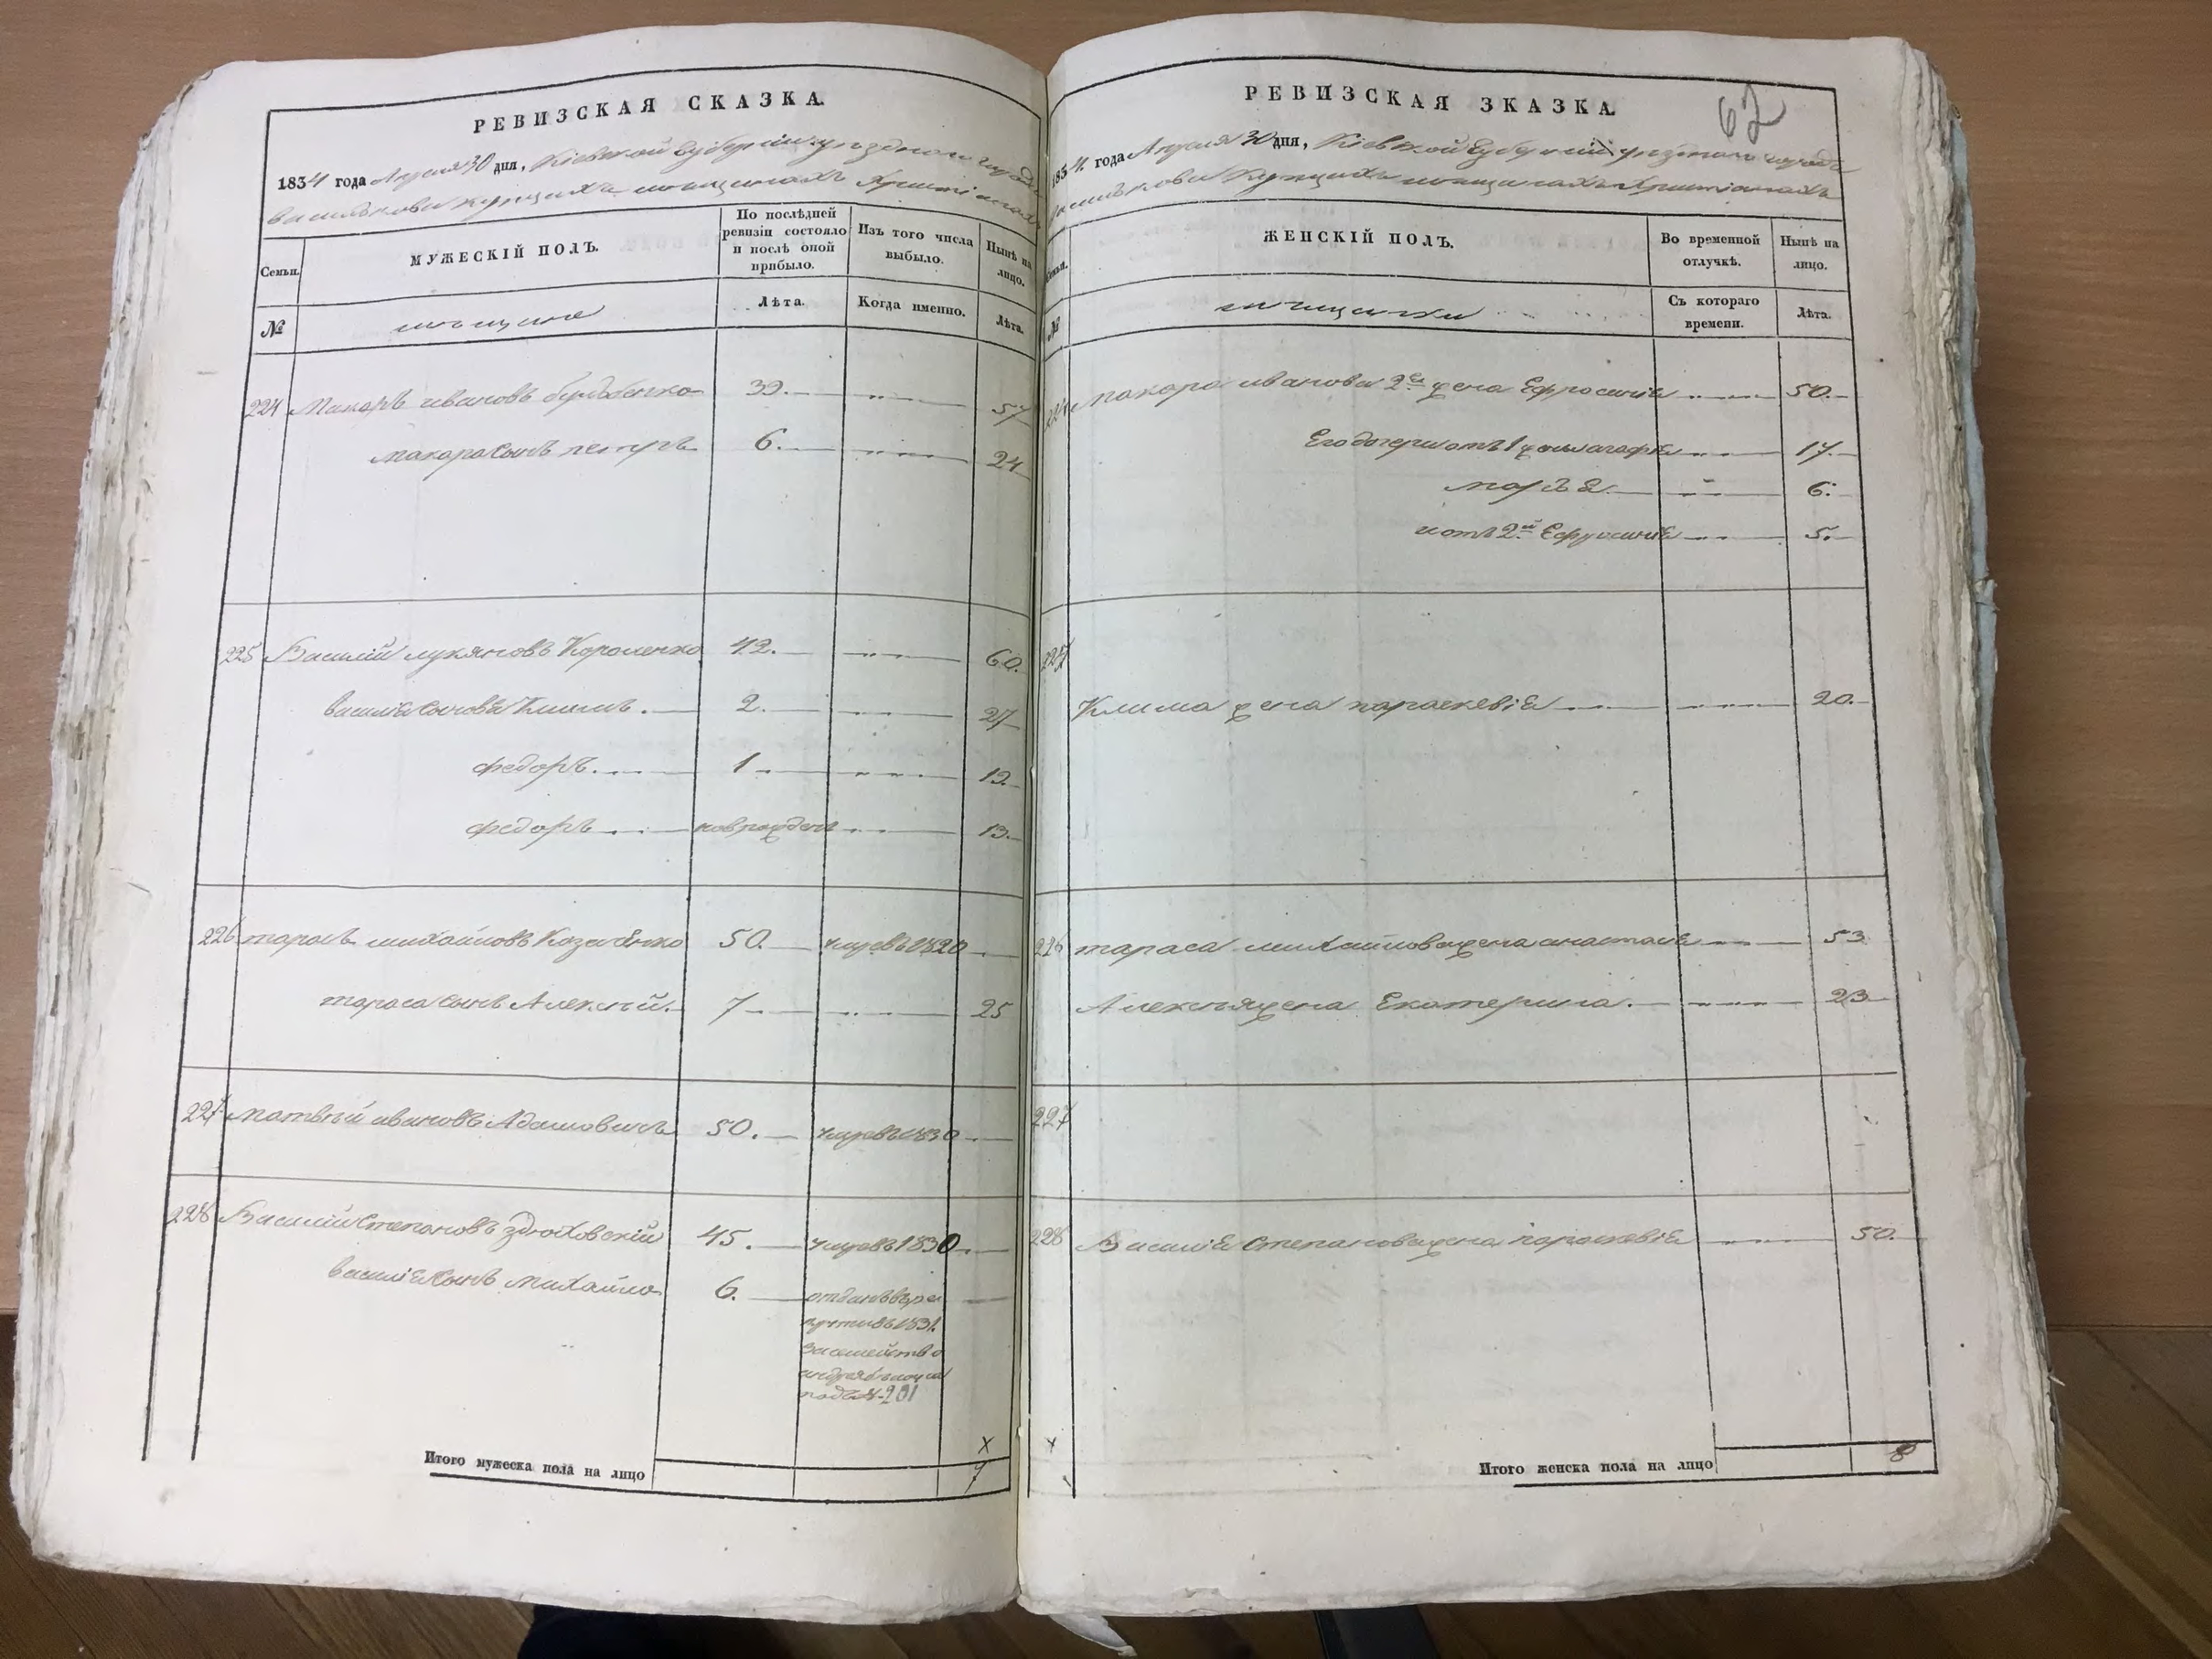 РЕВИЗСКАЯ СКАЗКА.
1834 года Апреля 30 дня, Кіевской Губерніи уезднаго города
Василькова купцихъ мещанахъ Христіанахъ
Семьи.
МУЖЕСКІЙ ПОЛЪ.
По послѣдней ревизіи состояло и послѣ оной прибыло.
Изъ того числа выбыло.
Нынѣ на лицо.
№
мещане
Лѣта.
Когда именно.
Лѣта.
224 Макаръ ивановъ 39. 57
макара сынъ петръ 6. 24
225 Василій лукяновъ Короленко 42. 60.
василія сыновья Климъ. 2. 27
федоръ. 1 19.
федоръ новрожденъ 13.
226 тарасъ михайловъ 50. умревъ 1820
тараса сынъ Алексѣй. 7 25
227 матвѣй ивановъ Адамовичъ 50. умревъ 1830
228 Василій Степановъ здюховскій 45. умревъ 1830.
василія сынъ михайло 6. отданъ въ ре
крути въ 1831.
за семейство
андрея
подъ № 231
Итого мужеска пола на лицо 7
РЕВИЗСКАЯ ЗКАЗКА.
62
1834. года Апреля 30 дня, Кіевской Губерніи уезднаго города
Василькова Купцихъ мещанахъ Христіанахъ
Семьи.
ЖЕНСКІЙ ПОЛЪ.
Во временной отлучкѣ.
Нынѣ на лицо.
№
мещанки
Съ котораго времени.
Лѣта.
224 Макара иванова 2ая жена Ефросинія 50.
Его дочери отъ 1 жены агафія 17.
марья 6.
и отъ 2й Ефросинія 5.
225
Клима жена параскевія 20.
226 тараса михайлова жена анастасія 53
Алексѣя жена Екатерина. 23
227
228 Василія Степанова жена параскевія 50.
Итого женска пола на лицо 8